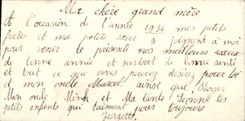 Ma chère grand mère
A l'occasion de l'année 1936 mes petits
frères et ma petite sœur se joignent à moi
pour venir te présenter nos meilleurs vœux
de bonne année et surtout de bonne santé
et tout ce que vous pouvez désirer pour toi
de mon oncle Marcel ainsi que Oscar
Mon oncle et Ma tante Yvonne tes
petits enfants qui t'aiment tous toujours